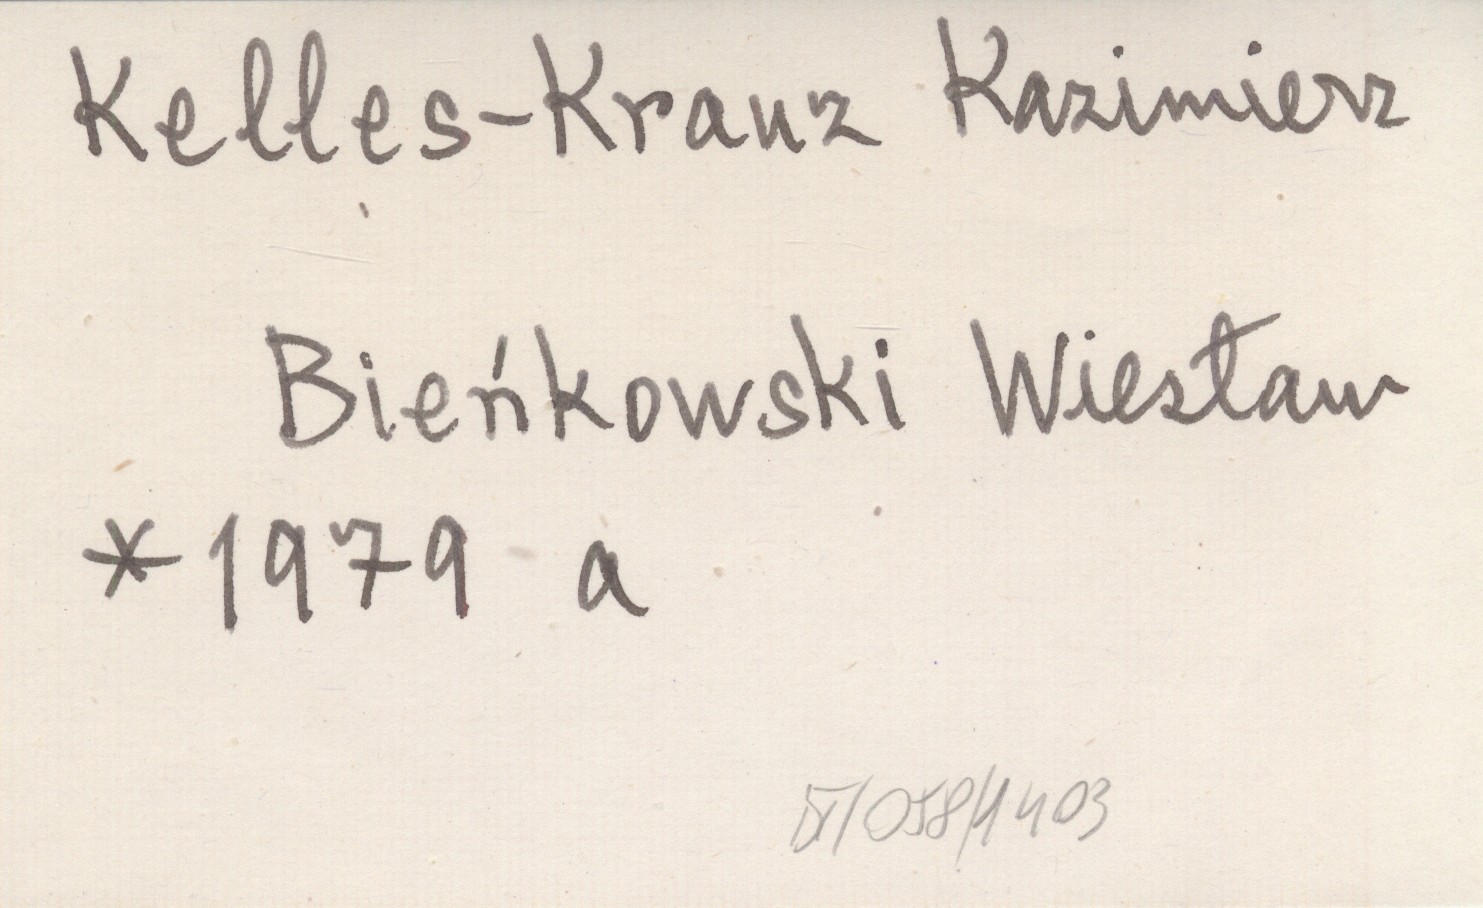 Kelles-Krauz Kazimierz
Bieńkowski Wiesław
* 1979 a
IV/058/1403